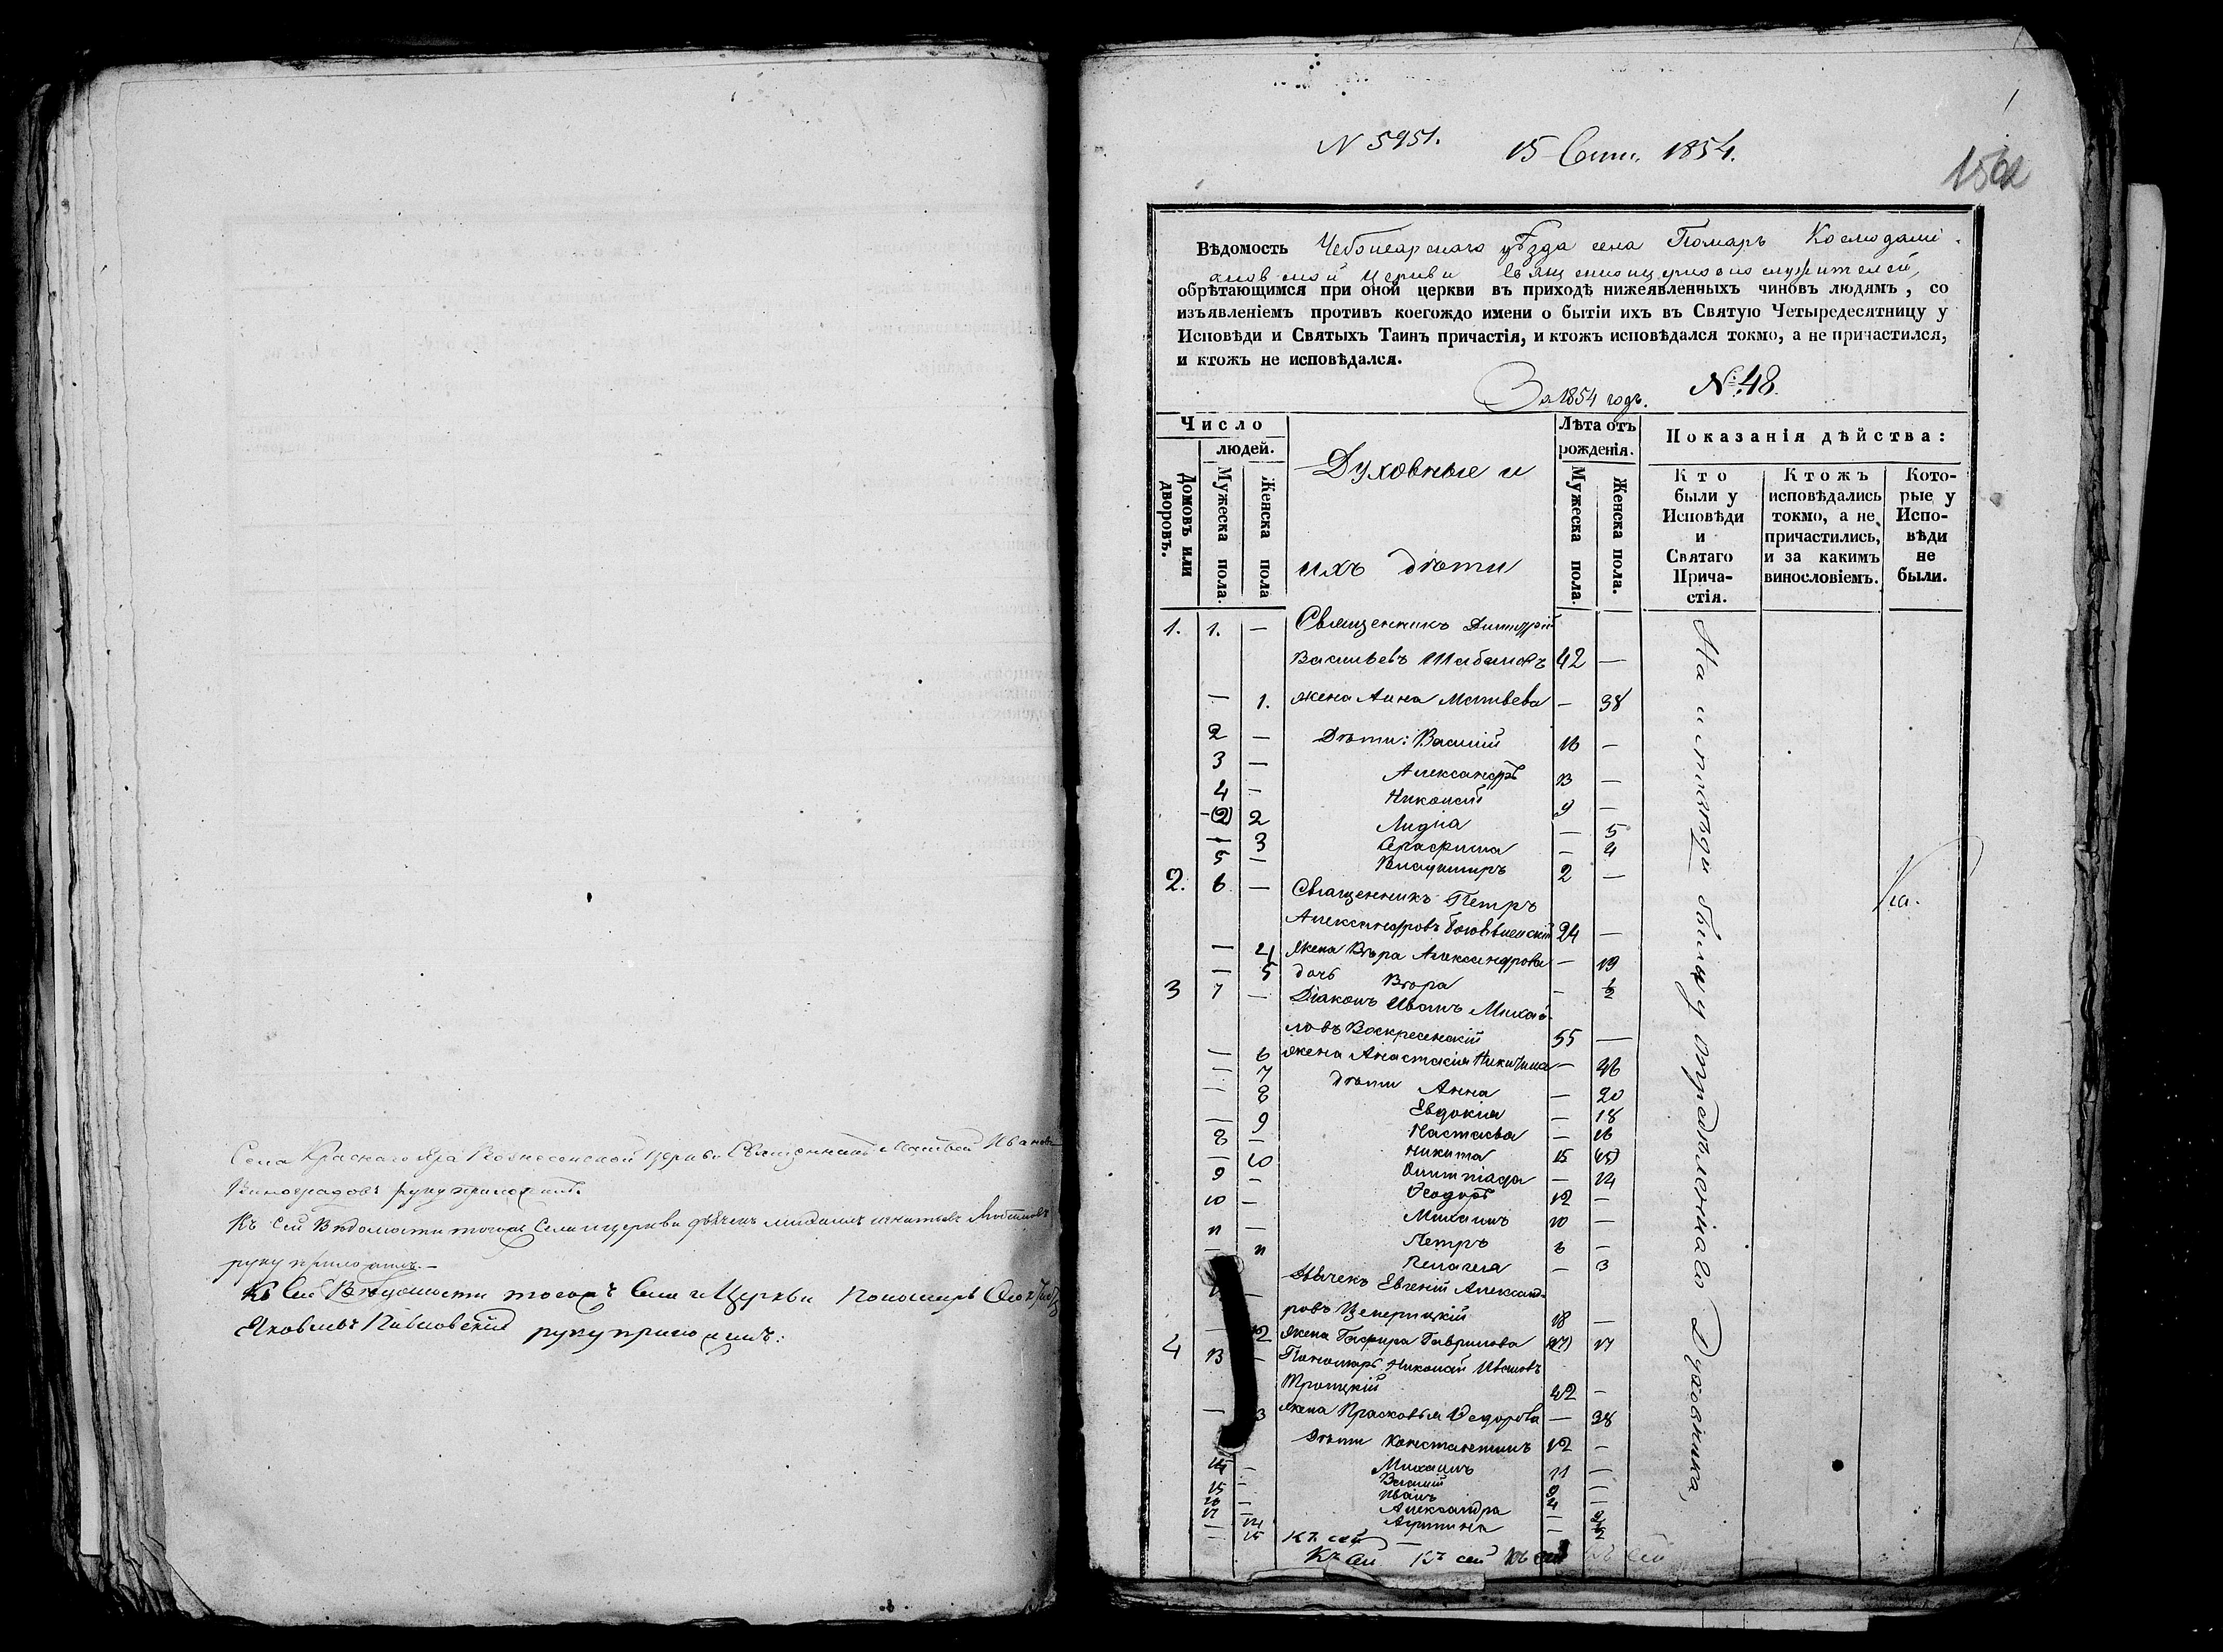 Села Краснаго Яра Вознесенской церкви Священникъ Матвей Иванов
Виноградовъ руку приложилъ.
Къ сей Ведомости тогожъ Села и церкви дьячекъ михаилъ игнатьевъ
руку приложилъ.
Къ Сей Ведомости тогожъ Села и Церкви Пономарь
Яковлевъ руку приложилъ:
N 5951. 15 Сент. 1854.
Вѣдомость Чебоксарскаго уѣзда села Помаръ Космодамі-
ановской церкви священноцерковнослужителей,
обрѣтающимся при оной церкви въ приходѣ нижеявленныхъ чиновъ людямъ, со
изъявленіемъ противъ коегождо имени о бытіи ихъ въ Святую Четыредесятницу у
Исповѣди и Святыхъ Таинъ причастія, и ктожъ исповѣдался токмо, а не причастился,
и ктожъ не исповѣдался.
За 1854 годъ. №: 48.
Число
людей.
Домовъ или дворовъ.
Мужеска пола.
Женска пола
Духовные и
ихъ дѣти
Лѣта отъ
рожденія.
Мужеска пола.
Женска пола.
Показанія дѣйства:
Кто
были у
Исповѣди
и
Святаго
Прича-
стія.
Ктожъ
исповѣдались
токмо, а не
причастились,
и за какимъ
винословіемъ.
Кото-
рые у
Испо-
вѣди
не
были.
1. 1. — Священникъ Димитрій
Васильевъ Шабановъ 42 —
— 1. жена Анна Матвѣева — 38
2 — Дѣти: Василій 16 —
3 — Александръ 13 —
4 — Николай 9 —
—(2) 2 Лидиа — 5
— 3 Серафима — 4
5 — Владимиръ 2 —
2. 6 — Священникъ Петръ
Александровъ 24 —
— 4 Жена Вѣра Александрова — 19
— 5 дочь Вѣра — ½
3 7 — Діаконъ Иванъ Михай-
ловъ Воскресенскій 55 —
— 6 жена Анастасія Никитина — 46
— 7 дѣти Анна — 20
— 8 Евдокиа — 18
— 9 Настасья — 16
8 — Никита 15 (15)
— 10 Олимпіада — 14
9 — Ѳеодоръ 12 —
10 — Михаилъ 10 —
11 — Петръ 6 —
— 11 Пелагеа — 3
Дьячекъ Евгеній Александ-
ровъ 18 —
— 12 Жена Глафира Гаврилова (17) 17
4 13 — Пономарь Николай Ивановъ
Троицкій 42 —
— 3 Жена Прасковья Ѳедорова — 38
Дѣти Константинъ 12 —
14 — Михаилъ 11 —
15 — Василій 9 —
16 — Иванъ 4 —
17 — Александра —
— 15 — ½
Къ сей
Къ сей Къ сей Къ сей Къ сей
На исповѣди были у отправленіаго Духовника,